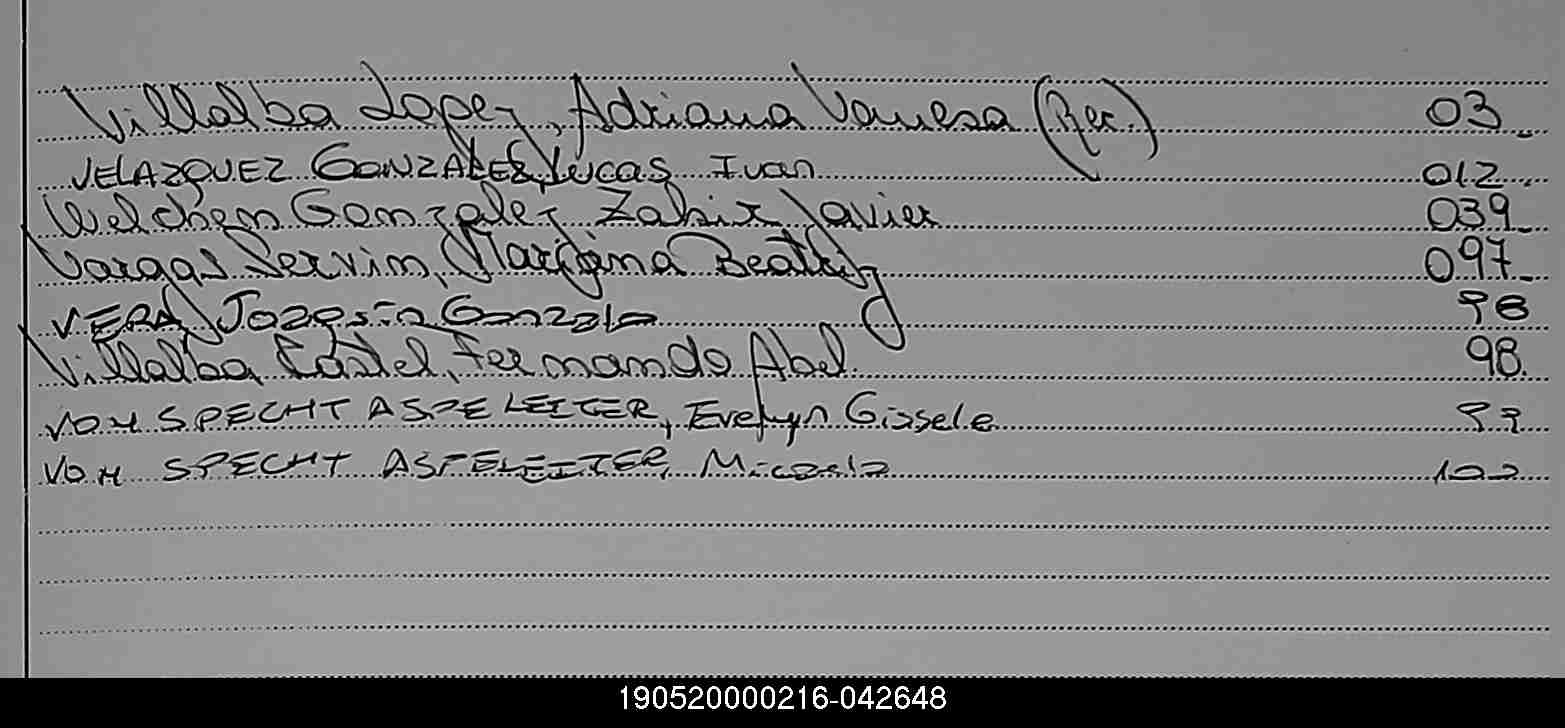 Villalba Lopez, Adriana Vanesa (Rec.) 03
VELAZQUEZ GONZALEZ, Lucas Ivan 012
Welchen Gonzalez Zahir Javier 039
Vargas Servin, Mariana Beatriz 097
VERA, Joaquín Gonzalo 98
Villalba Castel, Fernando Abel 98
VOM SPECHT ASPELEITER, Evelyn Gissele 99
VOM SPECHT ASPELEITER, Micaela 100
190520000216-042648